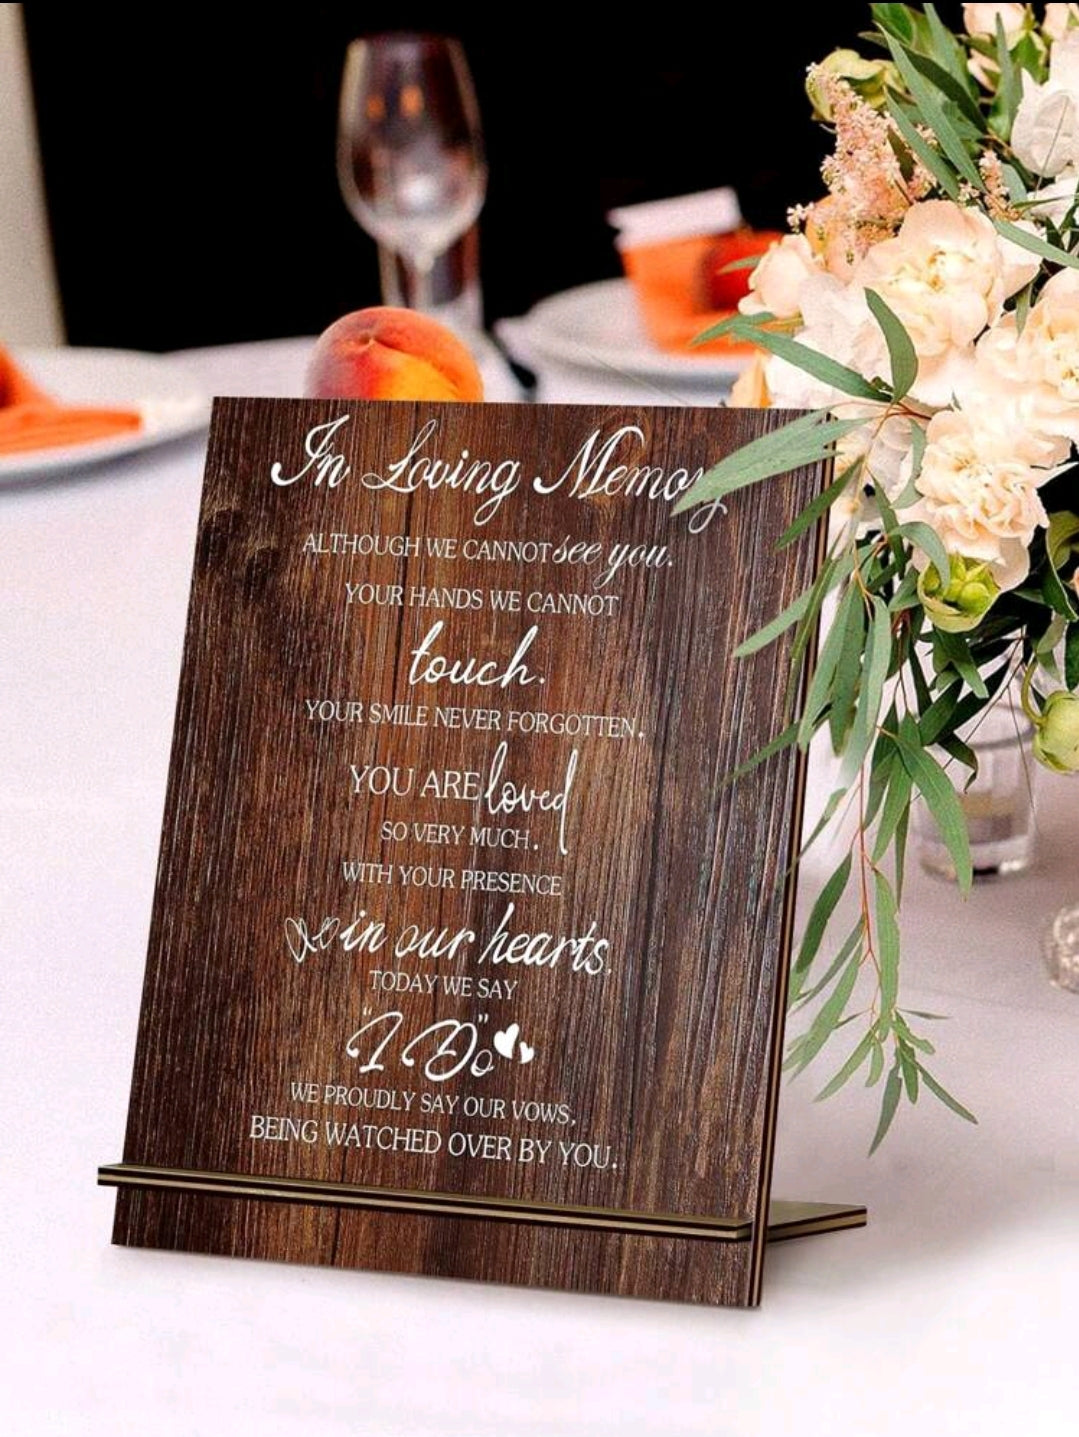 In Loving Memory
ALTHOUGH WE CANNOT see you.
YOUR HANDS WE CANNOT
touch.
YOUR SMILE NEVER FORGOTTEN.
YOU ARE loved
SO VERY MUCH.
WITH YOUR PRESENCE
in our hearts.
TODAY WE SAY
"I Do"
WE PROUDLY SAY OUR VOWS,
BEING WATCHED OVER BY YOU.